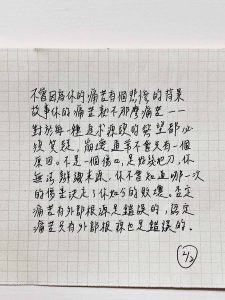 不會因為你的痛苦有個悲慘的背景
故事你的痛苦就不那麼痛苦——
對於每一種追求療癒的希望都必
須質疑，崩壞通常不會只有一個
原因。不是一個傷口，是好幾把刀，你
無法辨識來源，你不會知道哪一次
的傷害決定了你如今的敗壞。否定
痛苦有外部根源是錯誤的，認定
痛苦只有外部根源也是錯誤的。